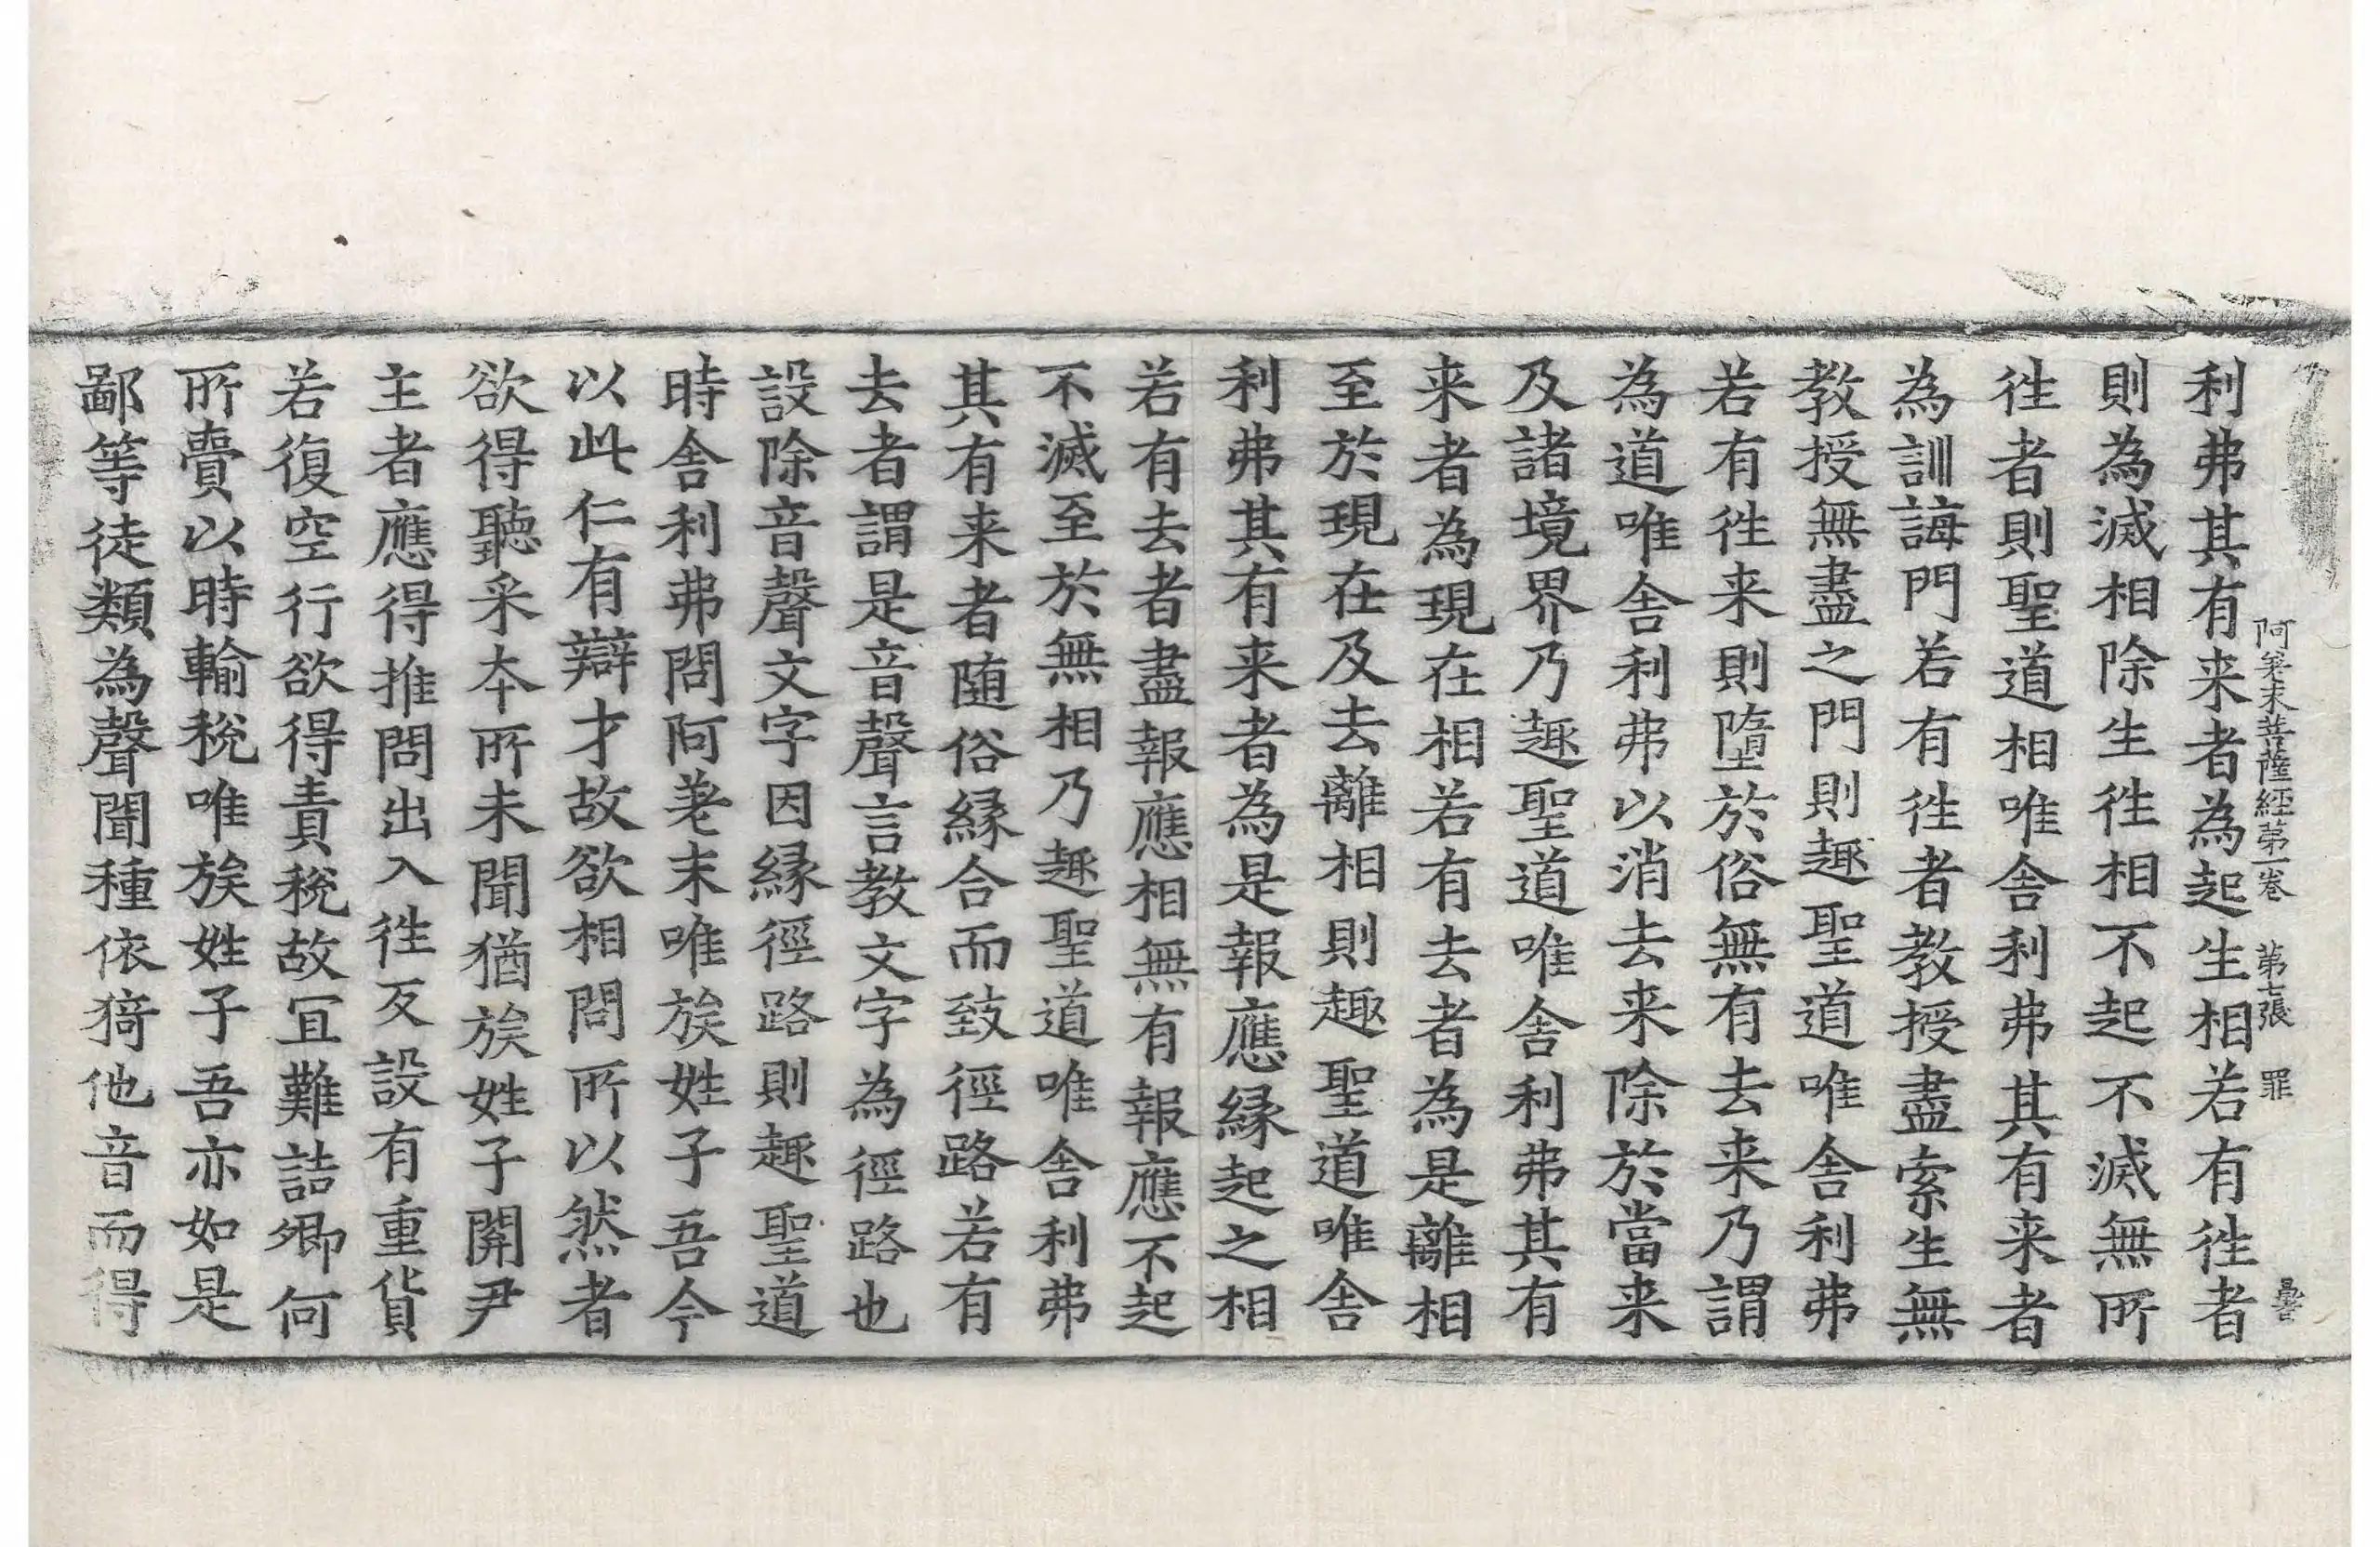 阿差末菩薩經第一卷　第七張　罪
利弗其有来者為起生相若有徃者
則為滅相除生徃相不起不滅無所
徃者則聖道相唯舍利弗其有来者
為訓誨門若有徃者教授盡索生無
教授無盡之門則趣聖道唯舍利弗
若有徃来則墮於俗無有去来乃謂
為道唯舍利弗以消去来除於當来
及諸境界乃趣聖道唯舍利弗其有
来者為現在相若有去者為是離相
至於現在及去離相則趣聖道唯舍
利弗其有来者為是報應縁起之相
若有去者盡報應相無有報應不起
不滅至於無相乃趣聖道唯舍利弗
其有来者随俗縁合而致徑路若有
去者謂是音聲言教文字為徑路也
設除音聲文字因縁徑路則趣聖道
時舍利弗問阿差末唯族姓子吾今
以此仁有辯才故欲相問所以然者
欲得聽采本所未聞猶族姓子關尹
主者應得推問出入徃反設有重貨
若復空行欲得責稅故冝難詰卿何
所賣以時輸稅唯族姓子吾亦如是
鄙等徒類為聲聞種依猗他音而得